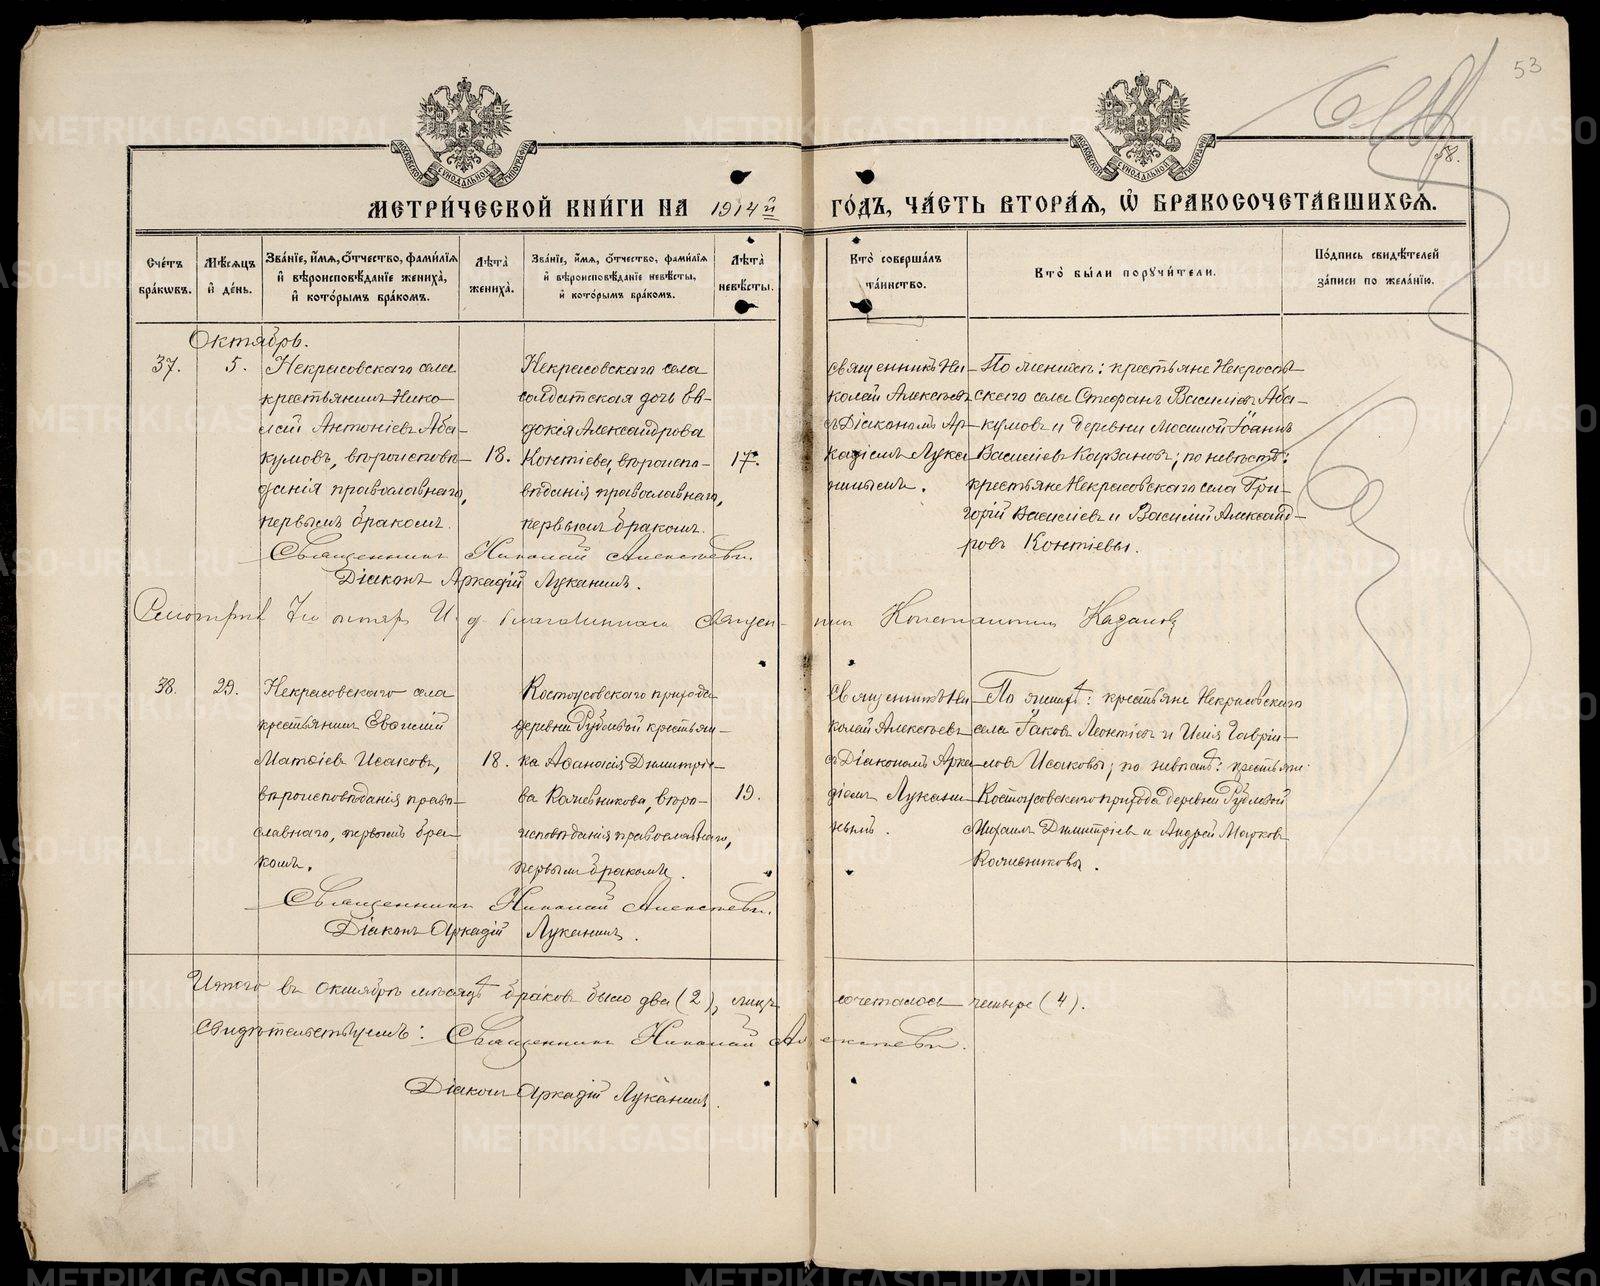 53
58.
МЕТРИ́ЧЕСКОЙ КНИ́ГИ НА 1914й ГО́ДЪ, ЧА́СТЬ ВТОРА́Я, Ѿ БРАКОСОЧЕТА́ВШИХСЯ.
Сче́тъ бра́ковъ.
Мѣ́сяцъ и́ де́нь.
Зва́нїе, и́мя, ѻ́тчество, фами́лїя и́ вѣроисповѣ́данїе жениха̀, и́ кото́рымъ бра́комъ.
Лѣта̀ жениха̀.
Зва́нїе, и́мя, ѻ́тчество, фами́лїя и́ вѣроисповѣ́данїе невѣ́сты, и́ кото́рымъ бра́комъ.
Лѣта̀ невѣ́сты.
Кто̀ соверша́лъ та́инство.
Кто̀ бы́ли поручи́тели.
По́дпись свидѣ́телей за́писи по жела́нїю.
Октябрь.
37.
5.
Некрасовскаго села
крестьянинъ Нико-
лай Антонiевъ Аба-
кумовъ, вѣроисповѣ-
данiя православнаго,
первымъ бракомъ.
18.
Некрасовскаго села
солдатская дочь Ев-
докiя Александрова
Контiева, вѣроиспо-
вѣданiя православнаго,
первымъ бракомъ.
17.
священникъ Ни-
колай Алексѣевъ
съ Дiакономъ Ар-
кадiемъ Лука-
нинымъ.
По женихѣ: крестьяне Некрасов-
скаго села Стефанъ Василiевъ Аба-
кумовъ и деревни Мосиной Iоаннъ
Василiевъ Карзановъ; по невѣстѣ:
крестьяне Некрасовскаго села Гри-
горiй Василiевъ и Василiй Александ-
ровъ Контiевы.
Священникъ Николай Алексѣевъ.
Дiаконъ Аркадiй Луканинъ.
Смотрѣлъ И. д. благочиннаго Священ-
никъ Константинъ
38.
29.
Некрасовскаго села
крестьянинъ Евѳимiй
Матѳiевъ Исаковъ,
вѣроисповѣданiя право-
славнаго, первымъ бра-
комъ.
18.
Костоусовскаго прихода
деревни Рублевой крестьян-
ка Аѳанасiя Димитрiе-
ва Кожевникова, вѣро-
исповѣданiя православнаго,
первымъ бракомъ.
19.
Священникъ Ни-
колай Алексѣевъ
съ Дiакономъ Арка-
дiемъ Лукани-
нымъ.
По женихѣ: крестьяне Некрасовскаго
села Iаковъ Леонтiевъ и Илiя Гаврiи-
ловъ Исаковы; по невѣстѣ: крестьяне
Костоусовскаго прихода деревни Рублевой
Михаилъ Димитрiевъ и Андрей Марковъ
Кожевниковы.
Священникъ Николай Алексѣевъ.
Дiаконъ Аркадiй Луканинъ.
Итого въ октябрѣ мѣсяцѣ браковъ было два (2), лицъ сочеталось четыре (4).
Свидѣтельствуемъ: Священникъ Николай Алексѣевъ.
Дiаконъ Аркадiй Луканинъ.
METRIKI.GASO-URAL.RU